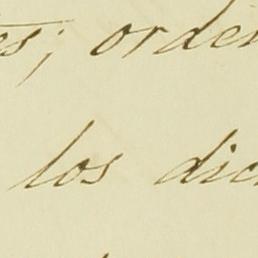 es; orden
los dic